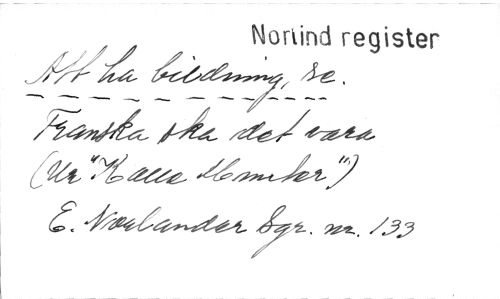 Norlind register
Att ha bildning, se.
Franska ska det vara
(Ur "Kalle Munter")
E. Norlander Sgr. nr. 133